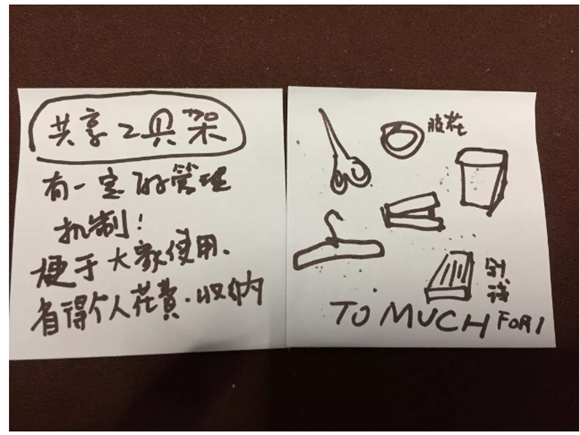 共享工具架
有一定的管理
机制!
便于大家使用.
省得个人花费.收纳
胶卷
针
线
TO MUCH FOR 1